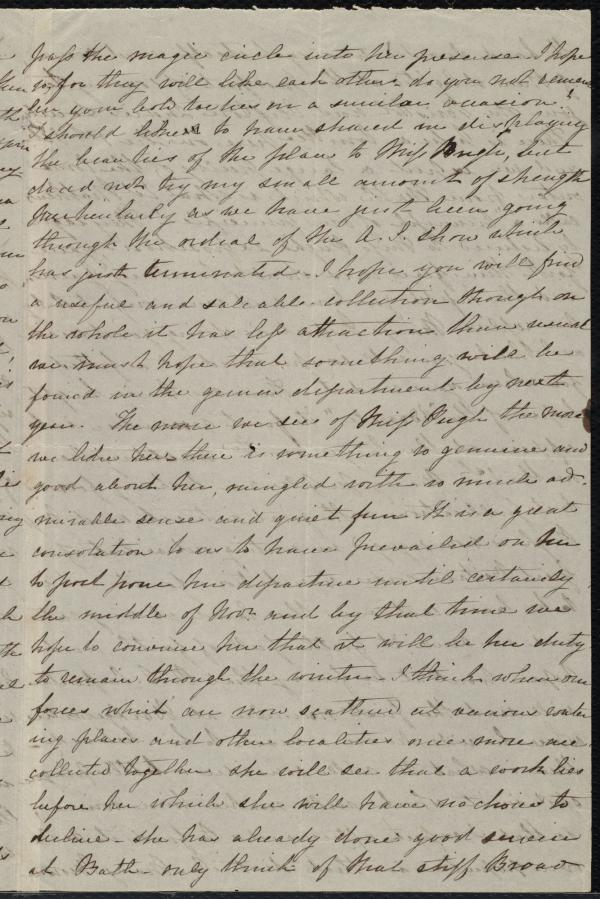 pass the magic circle into her presence. I hope
so, for they will like each other. do you not remem
ber your both on a similar occasion!
I should liked to have shared in displaying
the beauties of the place to Miss Pugh, but
dared not try my small amount of strength
particularly as we have just been going
through the ordeal of the A. S. show which
has just terminated. I hope you will find
a useful and saleable collection though on
the whole it has less attraction than usual
we must hope that something will be
found in the genius department by next
year. The more we see of Miss Pugh the more
we like her there is something so genuine and
good about her, mingled with so much ad-
mirable sense and quiet fun. It is a great
consolation to us to have prevailed on her
to post pone her departure until certainly
the middle of Novr. and by that time we
hope to convince her that it will be her duty
to remain through the winter. I think when our
forces which are now scattered at various water
ing places and other localities once more are
collected together she will see that a work lies
before her which she will have no choice to
decline - she has already done good service
at Bath - only think of that stiff Broad